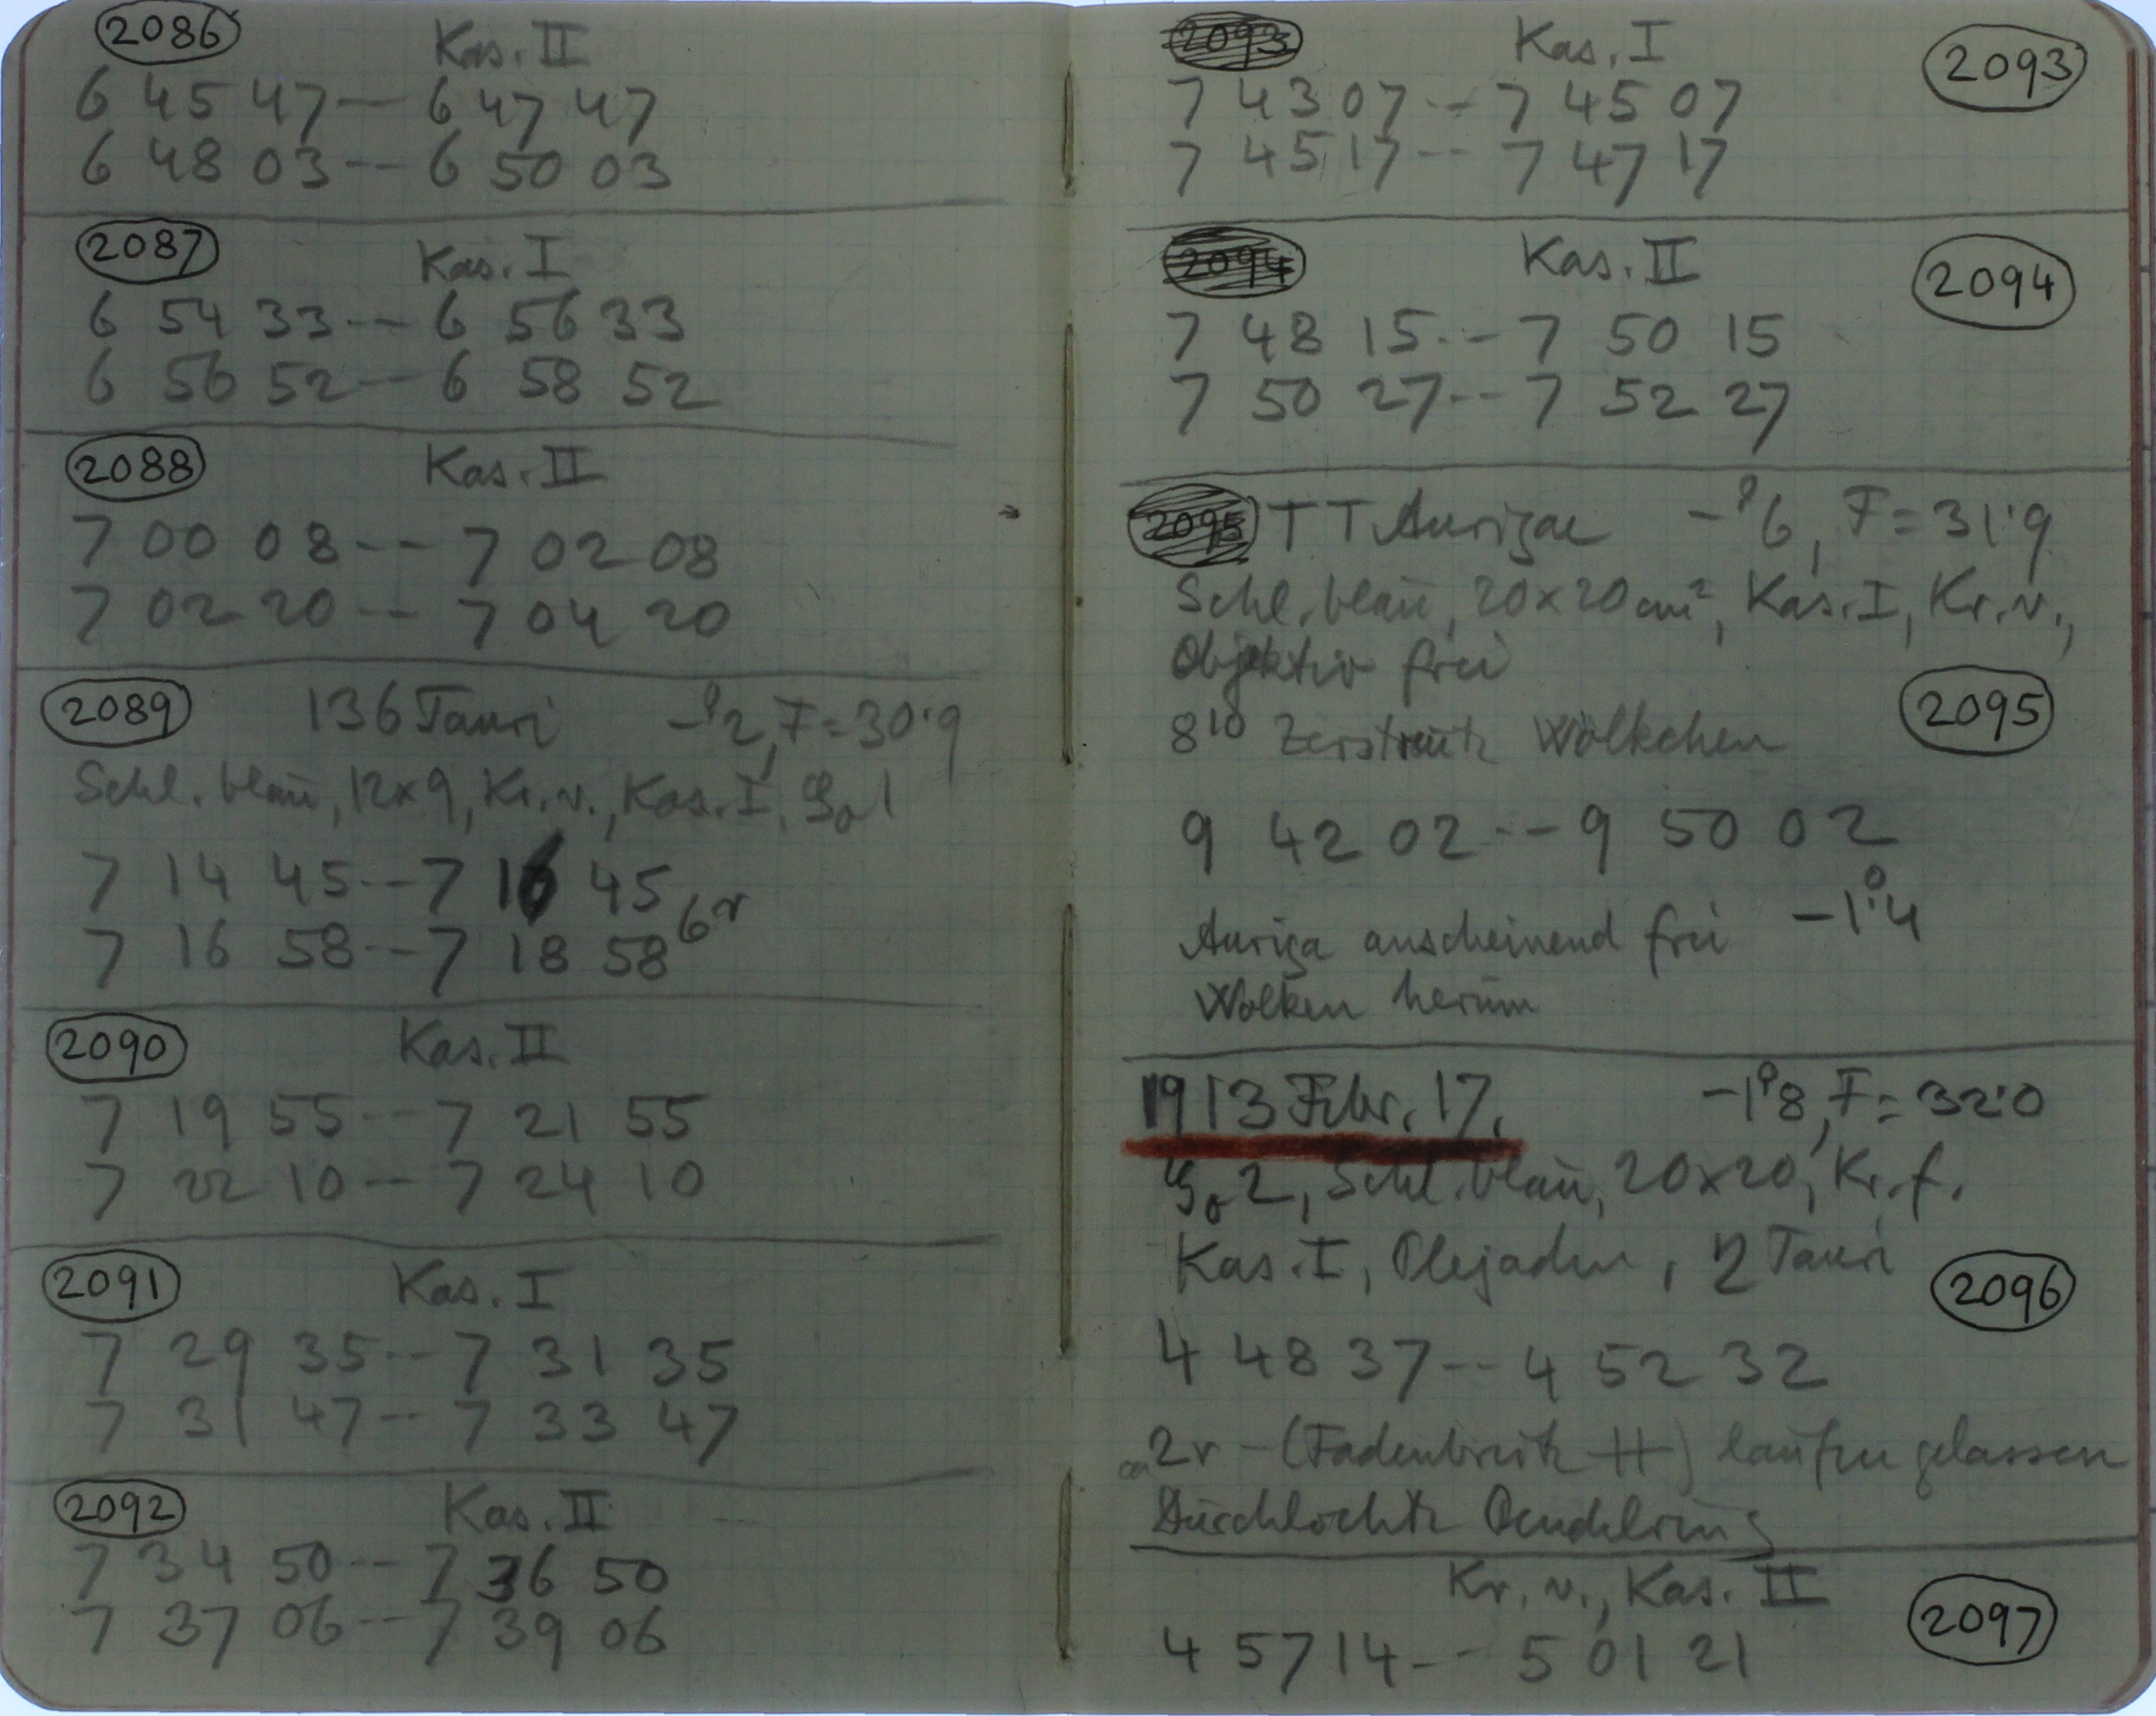 2086 Kas. II
6 45 47 -- 6 47 47
6 48 03 -- 6 50 03
2087 Kas. I
6 54 33 -- 6 56 33
6 56 52 -- 6 58 52
2088 Kas. II
7 00 08 -- 7 02 08
7 02 20 -- 7 04 20
2089 136 Tauri -°2, F=30.9
Schl. blau, 12x9, Kr. v., Kas. I, 1
7 14 45 -- 7 16 45
6r
7 16 58 -- 7 18 58
2090 Kas. II
7 19 55 -- 7 21 55
7 22 10 -- 7 24 10
2091 Kas. I
7 29 35 -- 7 31 35
7 31 47 -- 7 33 47
2092 Kas. II
7 34 50 -- 7 36 50
7 37 06 -- 7 39 06
2093 Kas. I 2093
7 43 07 -- 7 45 07
7 45 17 -- 7 47 17
2094 Kas. II 2094
7 48 15 -- 7 50 15
7 50 27 -- 7 52 27
2095 TT Aurigae -°6, F=31.9
Schl. blau, 20x20 cm², Kas. I, Kr. v.,
Objektiv frei
2095
8¹⁰ Zerstreute Wölkchen
9 42 02 -- 9 50 02
Auriga anscheinend frei -1°.4
Wolken herum
1913 Febr. 17. -1°8, F=32.0
2, Schl. blau, 20x20, Kr. f.
Kas. I, Plejaden, η Tauri 2096
4 48 37 -- 4 52 32
ca 2r - (Fadenbreite ) laufen gelassen
Durchlochte
Kr. v., Kas. II
2097
4 57 14 -- 5 01 21